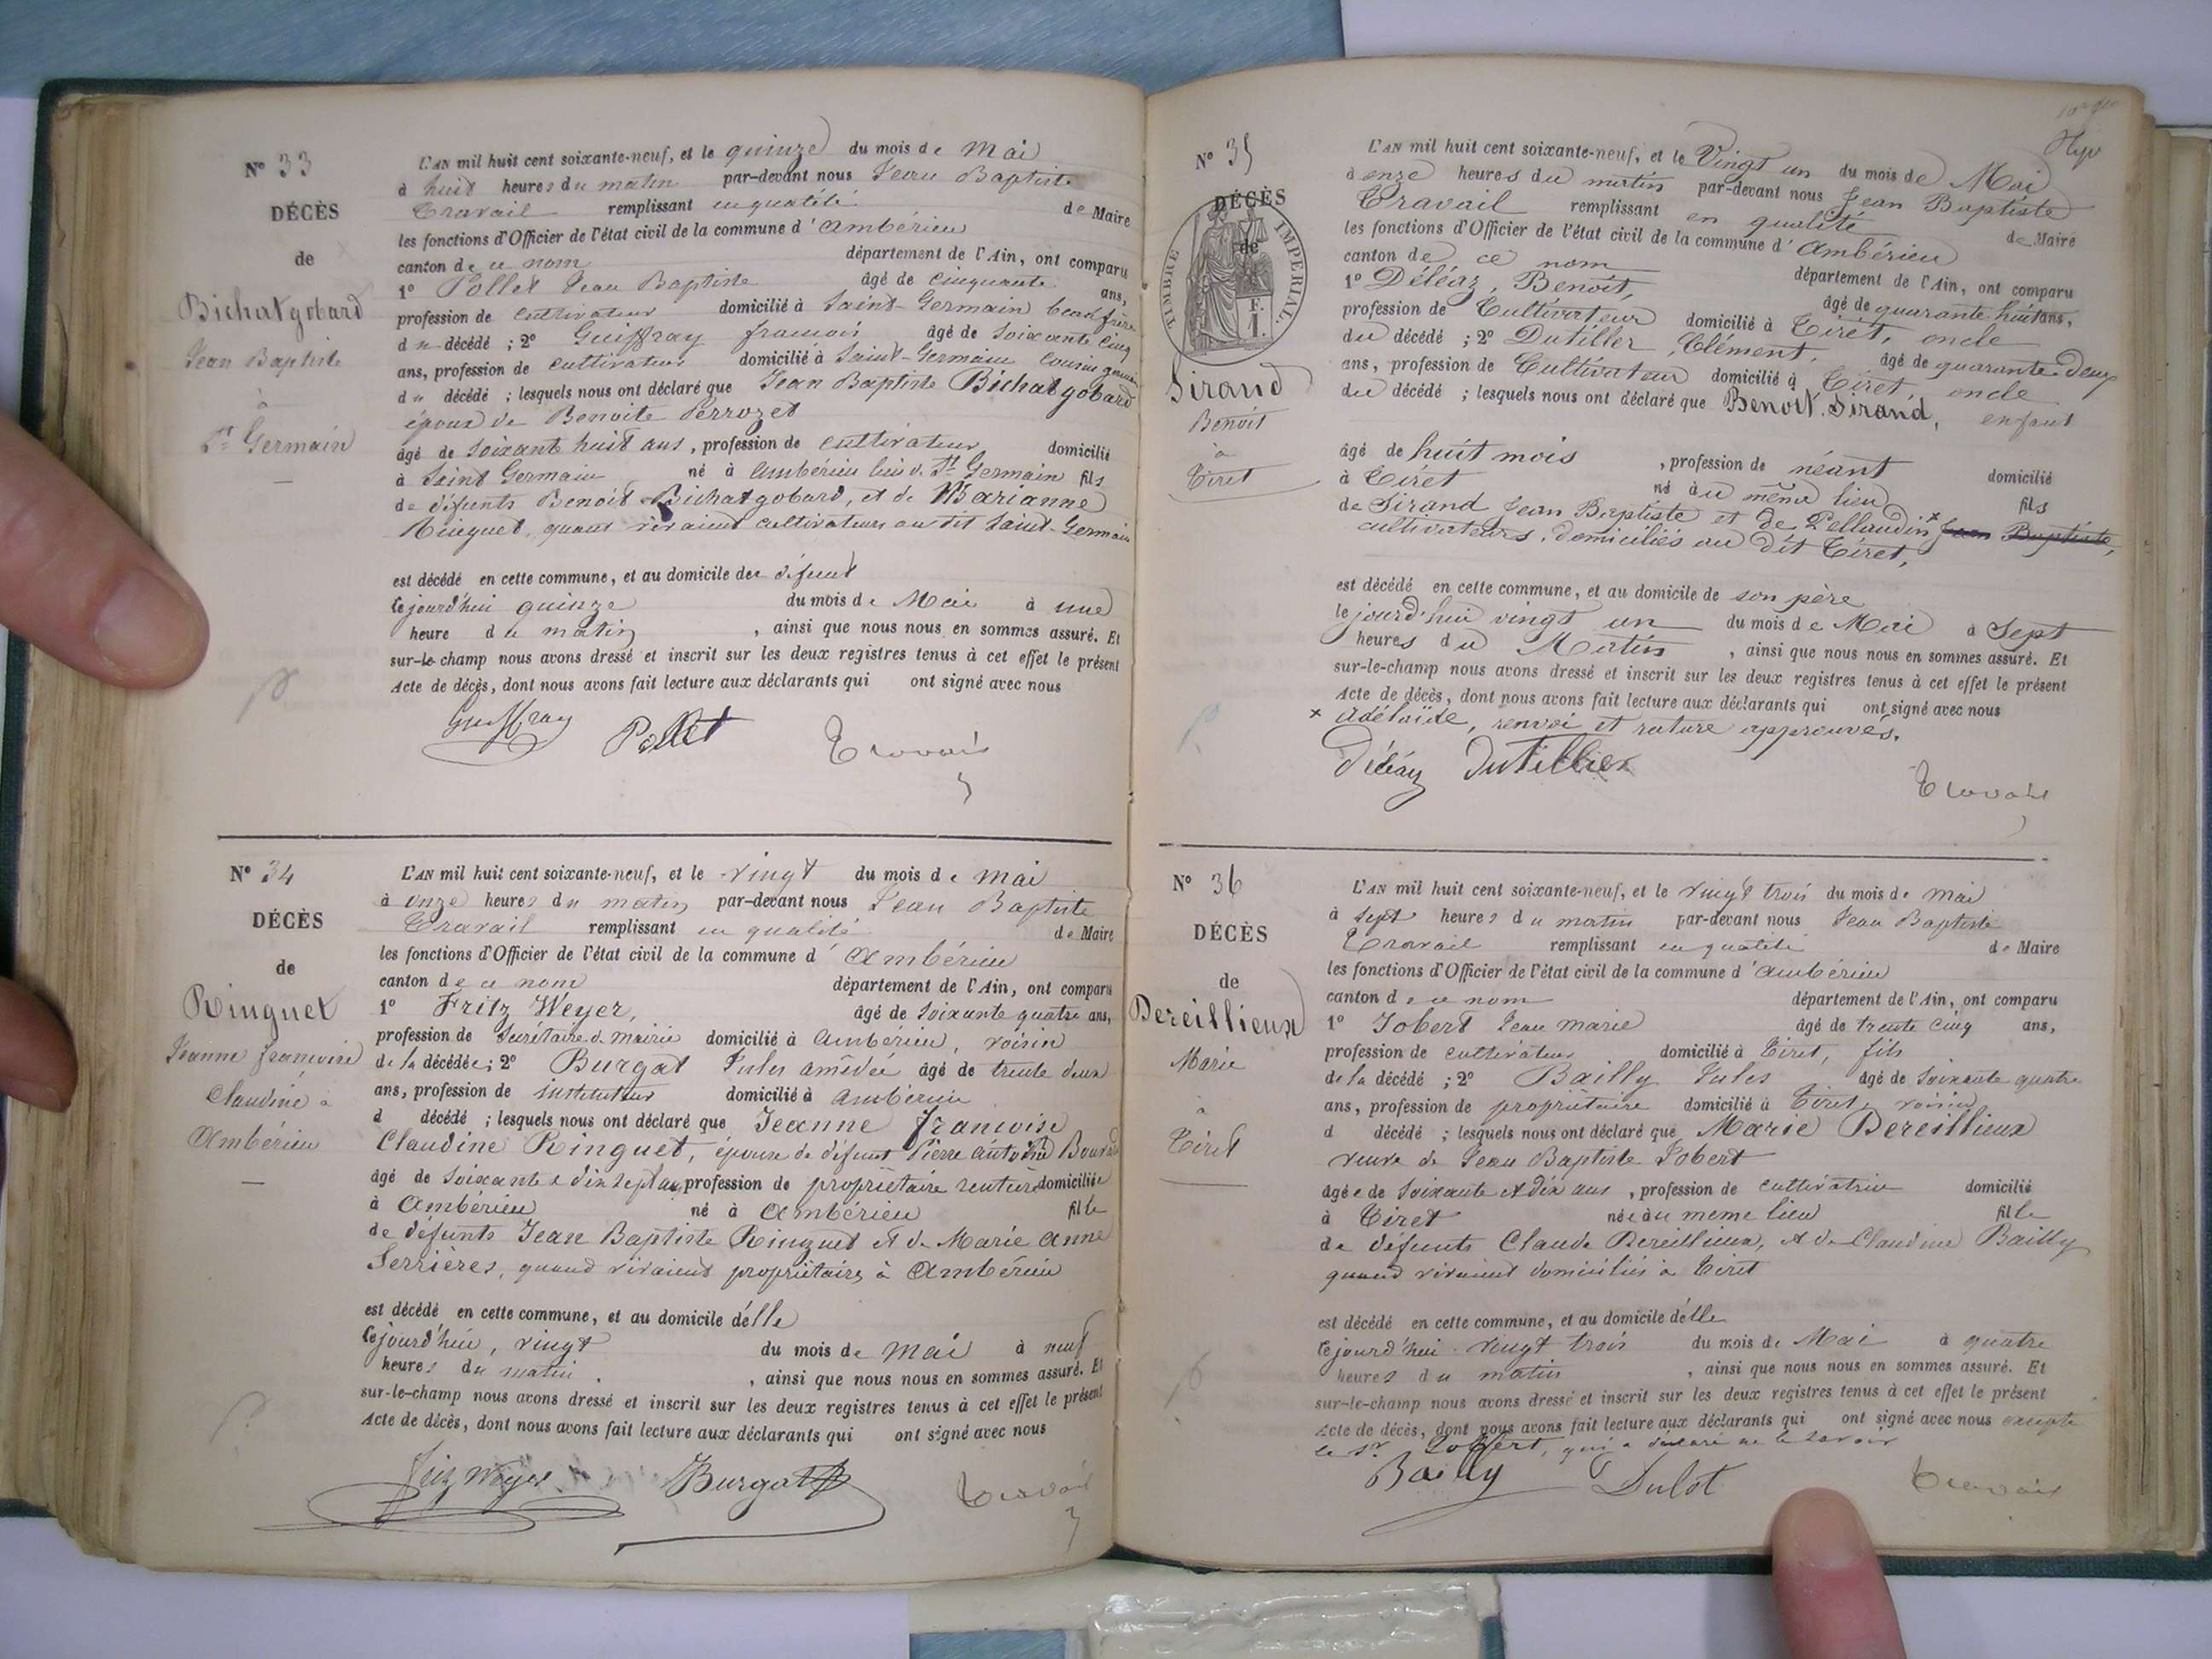 N° 33
DÉCÈS
de
Bichatgobard
Jean Baptiste
à
St Germain
L'AN mil huit cent soixante-neuf, et le quinze du mois de Mai
à huit heures du matin par-devant nous Jean Baptiste
Travail remplissant en qualité de Maire
les fonctions d'Officier de l'état civil de la commune d'Ambérieu
canton de ce nom département de l'Ain, ont comparu
1° Pollet Jean Baptiste âgé de cinquante ans,
profession de cultivateur domicilié à Saint-Germain beau frère
du décédé ; 2° Guiffray françois âgé de soixante cinq
ans, profession de cultivateur domicilié à Saint-Germain cousin germain
du décédé ; lesquels nous ont déclaré que Jean Baptiste Bichatgobard
époux de Benoite Perrozet
âgé de soixante huit ans, profession de cultivateur domicilié
à Saint Germain né à Ambérieu lieu de St Germain fils
de défunts Benoit Bichatgobard, et de Marianne
Ringuet, quand vivaient cultivateurs au dit Saint-Germain
est décédé en cette commune, et au domicile du défunt
cejourd'hui quinze du mois de Mai à une
heure du matin, ainsi que nous nous en sommes assuré. Et
sur-le-champ nous avons dressé et inscrit sur les deux registres tenus à cet effet le présent
Acte de décès, dont nous avons fait lecture aux déclarants qui ont signé avec nous
Guiffray Pollet Travail
N° 34
DÉCÈS
de
Ringuet
Jeanne françoise
Claudine à
Ambérieu
L'AN mil huit cent soixante-neuf, et le vingt du mois de mai
à onze heures du matin par-devant nous Jean Baptiste
Travail remplissant en qualité de Maire
les fonctions d'Officier de l'état civil de la commune d'Ambérieu
canton de ce nom département de l'Ain, ont comparu
1° Fritz Weyer, âgé de soixante quatre ans,
profession de Secrétaire de mairie domicilié à Ambérieu, voisin
de la décédée; 2° Burgat Jules amédée âgé de trente deux
ans, profession de instituteur domicilié à Ambérieu
d décédé ; lesquels nous ont déclaré que Jeanne françoise
Claudine Ringuet, épouse de défunt Pierre Antoine
âgé de soixante et dix sept ans profession de propriétaire rentière domiciliée
à Ambérieu né à Ambérieu fille
de défunts Jean Baptiste Ringuet et de Marie Anne
Serrières, quand vivaient propriétaires à Ambérieu
est décédé en cette commune, et au domicile d'elle
cejourd'hui, vingt du mois de mai à neuf
heures du matin, ainsi que nous nous en sommes assuré. Et
sur-le-champ nous avons dressé et inscrit sur les deux registres tenus à cet effet le présent
Acte de décès, dont nous avons fait lecture aux déclarants qui ont signé avec nous
Fritz Weyer Burgat Travail
N° 35
DÉCÈS
de
TIMBRE IMPERIAL
F.
1.
Sirand
Benoit
à
Tiret
L'AN mil huit cent soixante-neuf, et le Vingt un du mois de Mai
à onze heures du matin par-devant nous Jean Baptiste
Travail remplissant en qualité de Maire
les fonctions d'Officier de l'état civil de la commune d'Ambérieu
canton de ce nom département de l'Ain, ont comparu
1° Déléaz, Benoit, âgé de quarante huit ans,
profession de Cultivateur domicilié à Tiret, oncle
du décédé ; 2° Dutiller, Clément, âgé de quarante-deux
ans, profession de Cultivateur domicilié à Tiret, oncle
du décédé ; lesquels nous ont déclaré que Benoit Sirand, enfant
âgé de huit mois, profession de néant domicilié
à Tiret né au même lieu fils
de Sirand Jean Baptiste et de Pellaudin x Jean Baptiste,
cultivateurs, domiciliés au dit Tiret,
est décédé en cette commune, et au domicile de son père
le jourd'hui vingt un du mois de Mai à Sept
heures du Matin, ainsi que nous nous en sommes assuré. Et
sur-le-champ nous avons dressé et inscrit sur les deux registres tenus à cet effet le présent
Acte de décès, dont nous avons fait lecture aux déclarants qui ont signé avec nous
x Adélaïde, renvoi et rature approuvés.
Déléaz Dutillier Travail
N° 36
DÉCÈS
de
Dereillieux
Marie
à
Tiret
L'AN mil huit cent soixante-neuf, et le vingt trois du mois de mai
à sept heures du matin par-devant nous Jean Baptiste
Travail remplissant en qualité de Maire
les fonctions d'Officier de l'état civil de la commune d'Ambérieu
canton de ce nom département de l'Ain, ont comparu
1° Jobert Jean marie âgé de trente cinq ans,
profession de cultivateur domicilié à Tiret, fils
de la décédé ; 2° Bailly Jules âgé de soixante quatre
ans, profession de propriétaire domicilié à Tiret, voisin
d décédé ; lesquels nous ont déclaré que Marie Dereillieux
veuve de Jean Baptiste Jobert
âgée de soixante et dix ans, profession de cultivatrice domicilié
à Tiret née au même lieu fille
de défunts Claude Dereillieux, et de Claudine Bailly
quand vivaient domiciliés à Tiret
est décédé en cette commune, et au domicile d'elle
cejourd'hui vingt trois du mois de Mai à quatre
heures du matin, ainsi que nous nous en sommes assuré. Et
sur-le-champ nous avons dressé et inscrit sur les deux registres tenus à cet effet le présent
Acte de décès, dont nous avons fait lecture aux déclarants qui ont signé avec nous excepté
le Sr Jobert, qui a déclaré ne le savoir
Bailly Dulot Travail